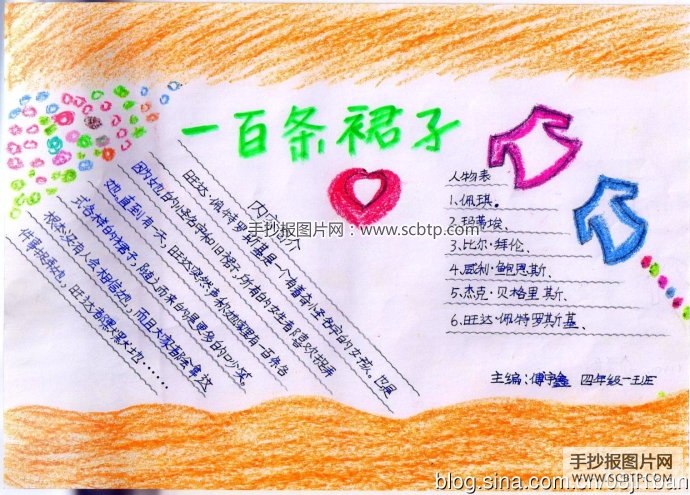 一百条裙子
内容简介
旺达·佩特罗斯基是一个有着奇怪名字的女孩。仅是
因为她的怪名字和旧裙子,所有的女生都喜欢捉弄
她,直到有一天,旺达突然声称她家里有一百条各
式各样的裙子,随之而来的是更多的口水。
根本没有人会相信她,而且大家都会拿这
件事捉弄她,旺达都默默
人物表
1.佩琪。
2.玛蒂埃、
3.比尔·拜伦、
4.威利·鲍恩斯、
5.杰克·贝格里斯、
6.旺达·佩特罗斯基、
主编:傅宇鑫 四年级一班
手抄报图片网:www.scbtp.com
手抄报图片网
WWW.SCBTP.COM